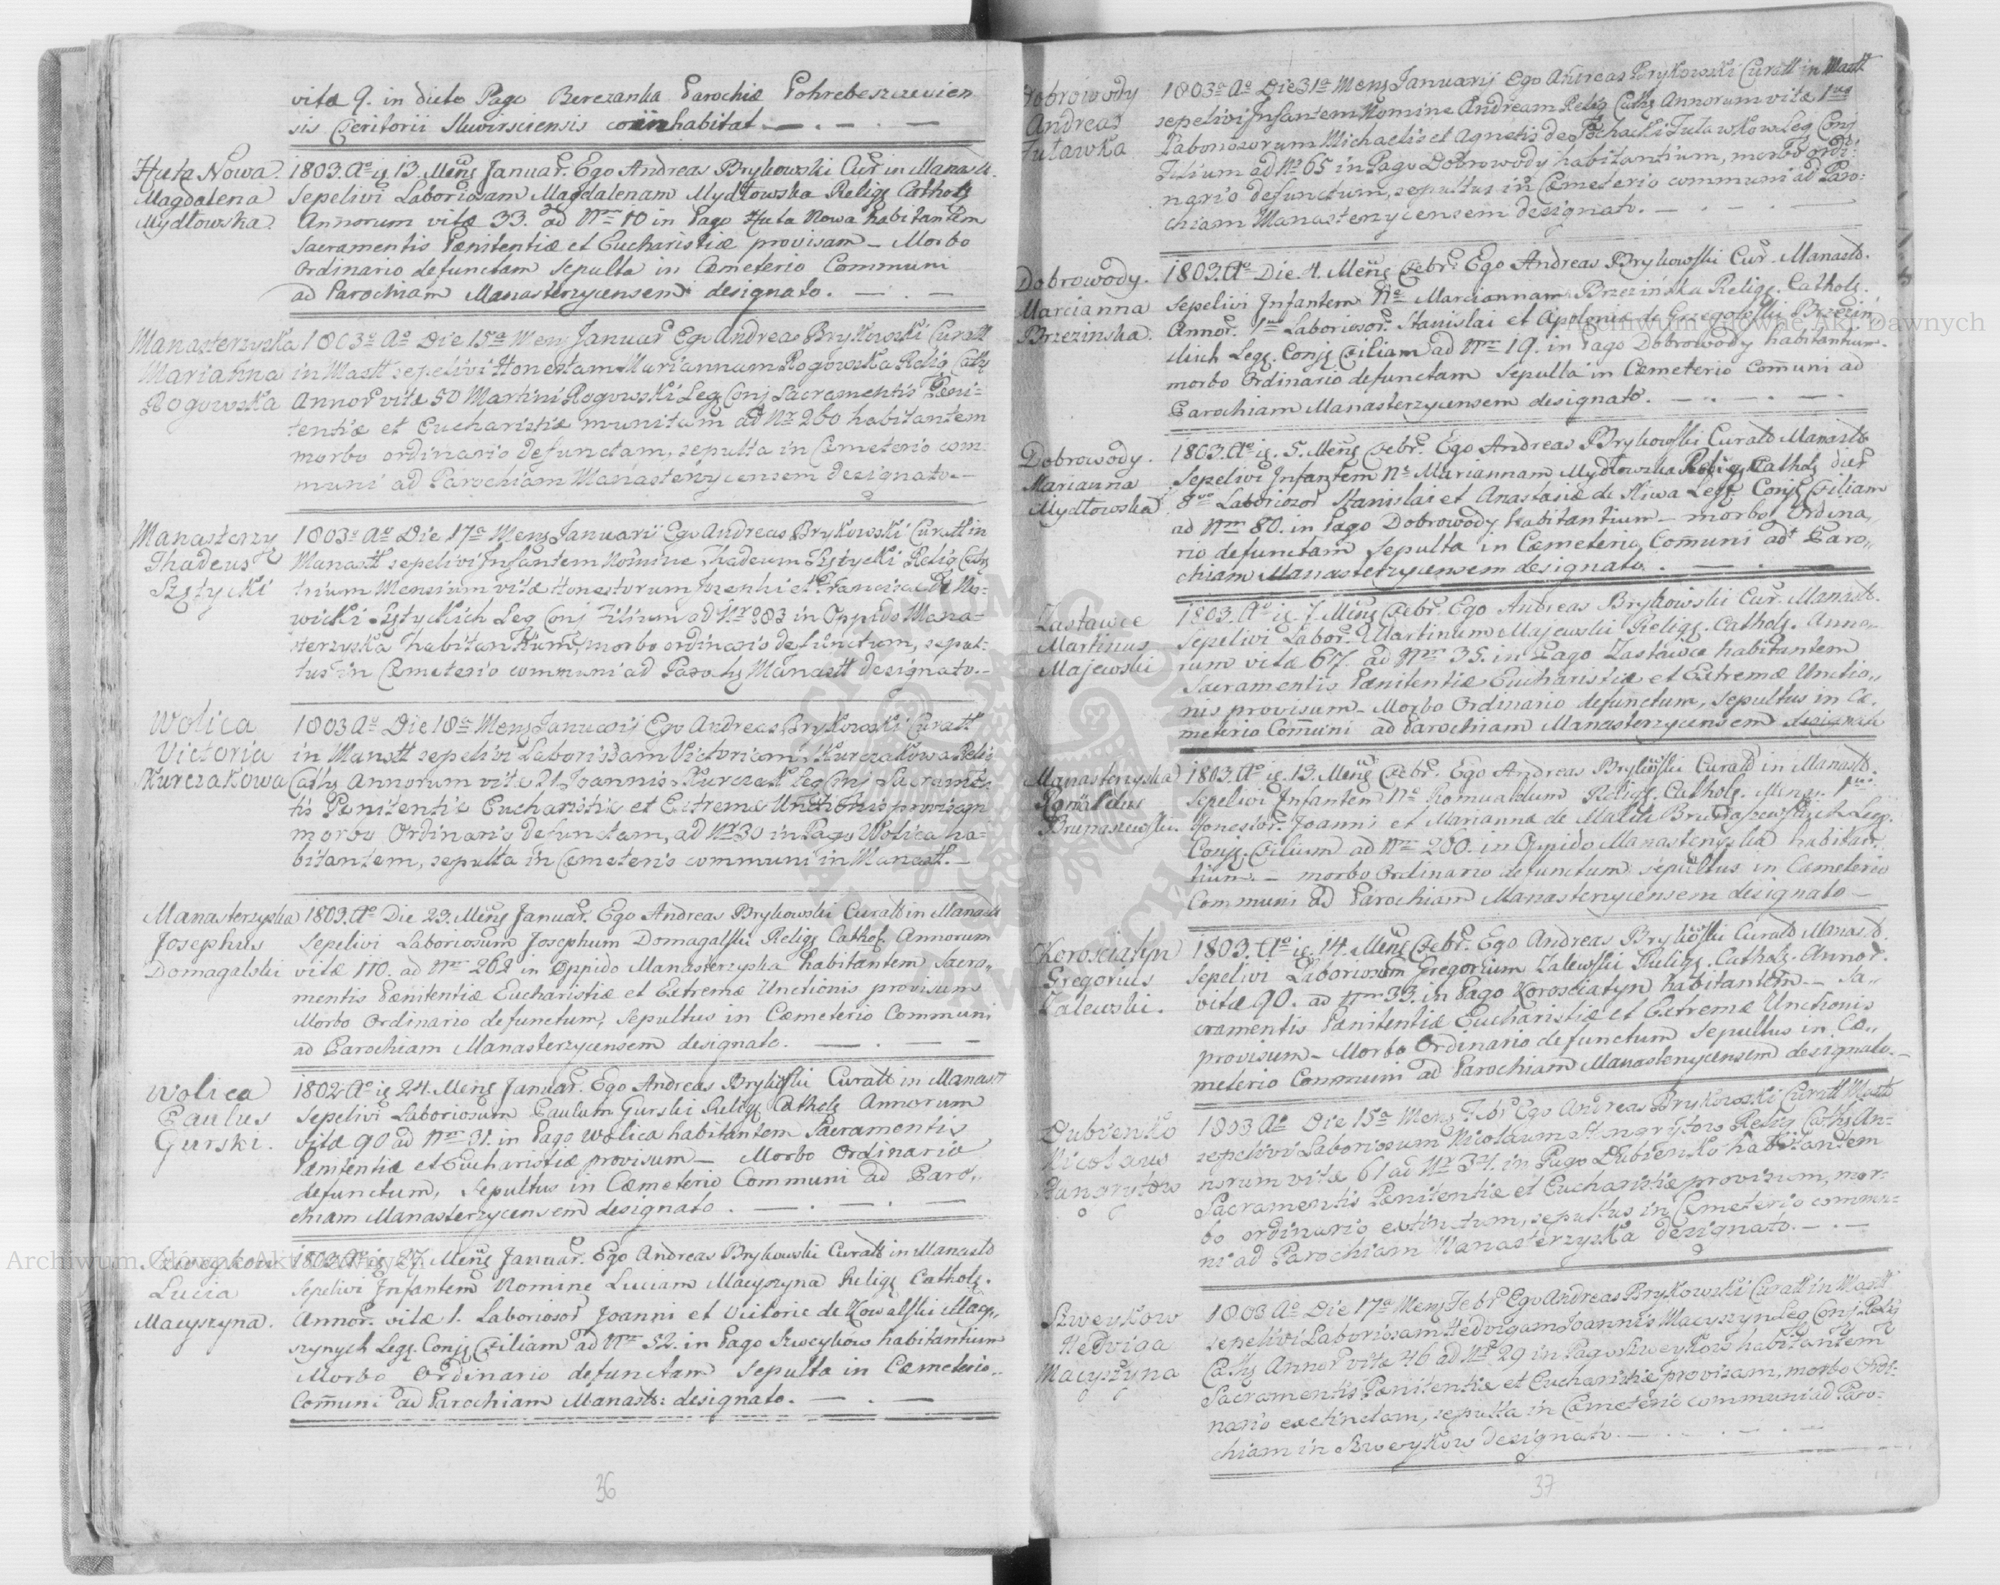 vitæ 9. in dicto Pago Berezanka Parochiæ Pohrebeszczevien
sis Territorii Skwirsciensis coinhabitat
Huta Nowa
Magdalena
Mydłowska
1803. Aº ig 13. Meng Januar. Ego Andreas Brykowski Cur in Manast.
Sepelivi Laboriosam Magdalenam Mydłowska Relig Catholg
Annorum vitæ 33. ad Nrm 10 in Pago Huta Nowa habitantem
Sacramentis Pænitentiæ et Eucharistiæ provisam – Morbo
Ordinario defunctam sepulta in Cæmeterio Communi
ad Parochiam Manasterzycensem designato.
Manasterzyska
Marianna
Rogowska
1803º Aº Die 15ta Meng Januar Ego Andreas Brykowski Curatt
in Mastt sepelivi Honestam Mariannam Rogowska Relig Cathg
Annor vitæ 50 Martini Rogowski Leg Conj Sacramentis Pæni-
tentiæ et Eucharistiæ munitam ad Nr 260 habitantem
morbo ordinario defunctam, sepulta in Cæmeterio com-
muni ad Parochiam Manasterzycensem designato.
Manasterzy
Thadeus
Szstycki
1803º Aº Die 17a Meng Januarii Ego Andreas Brykowski Curatt in
Manastt sepelivi Infantem Nomine Thadeum Relig Cathg
trium Mensium vitæ Honestorum Josephi et Francisca De No-
wicki Leg Conj Filium ad Nr 283 in Oppido Mana-
sterzyska habitantium, morbo ordinario defunctum, sepul-
tus in Cæmeterio communi ad Parochg Manastt designato.
Wolica
Victoria
Kurczakowa
1803 Aº Die 18a Meng Januarii Ego Andreas Brykowski Curatt
in Manstt sepelivi Laboriosam Victoriam Kurczakowa Reli
Cathg Annorum vitæ 21 Joannis Kurczak Leg Conj Sacramen
tis Pænitentiæ Eucharistiæ et Extremæ Unctionis provisam
morbo Ordinario defunctam, ad Nr 30 in Pago Wolica ha-
bitantem, sepulta in Cæmeterio communi in Manastt.
Manasterzyska
Josephus
Domagalski
1803. Aº Die 23. Meng Januar. Ego Andreas Brykowski Curatt in Manastt
Sepelivi Laboriosum Josephum Domagalski Relig Cathol Annorum
vitæ 110. ad Nrm 262 in Oppido Manasterzyska habitantem Sacra-
mentis Pænitentiæ Eucharistiæ et Extremæ Unctionis provisum
Morbo Ordinario defunctum, sepultus in Cæmeterio Communi
ad Parochiam Manasterzycensem designato.
Wolica
Paulus
Gurski.
1802 Aº ig 24. Meng Januar. Ego Andreas Brykoski Curatt in Manast
Sepelivi Laboriosum Paulum Gurski Relig Catholg Annorum
vitæ 90 ad Nrm 31. in Pago Wolica habitantem Sacramentis
Pænitentiæ et Eucharistiæ provisum – Morbo Ordinario
defunctum, sepultus in Cæmeterio Communi ad Paro,,
chiam Manasterzycensem designato.
Szweykow
Lucia
Macyszyna.
1803. Aº ig 27. Meng Januar. Ego Andreas Brykowski Curatt in Manastt
Sepelivi Infantem Nomine Luciam Macyszyna Relig Catholg.
Annor. vitæ 1. Laboriosor Joanni et Victoriæ de Kowalski Macy,,
szynych Legg. Conjg Filiam ad Nrm 52. in Pago Szweykow habitantium
Morbo Ordinario defunctam sepulta in Cæmeterio
Coɱuni ad Parochiam Manastt: designato.
36
Dobrowody
Andreas
Tutawka
1803º Aº Die 31a Meng Januarii Ego Andreas Brykowski Curatt in Mastt
sepelivi Infantem Nomine Andream Relig Cathg Annorum vitæ 1us
Laboriosorum Michaelis et Agnetis de Leg Conj
Filium ad Nr 65 in Pago Dobrowody habitantium, morbo ordi-
nario defunctum, sepultus in Cæmeterio communi ad Paro-
chiam Manasterzycensem designato.
Dobrowody.
Marcianna
Brzezinska.
1803. Aº Die. 4. Meng Febr. Ego Andreas Brykowski Cur. Manastt.
Sepelivi Infantem Nē Mariannam Brzezińska Relig. Catholg.
Annor. 1us Laboriosor. Stanislai et Apoloniæ de Szegolski Brzezin,
skich Legg. Conjg Filiam ad Nrm 19. in Pago Dobrowody habitantium.
morbo Ordinario defunctam Sepulta in Cæmeterio Comuni ad
Parochiam Manasterzycensem designato.
Dobrowody.
Marianna
Mydłowska
1803. Aº ig. 5. Meng Febr. Ego Andreas Brykowski Curatt Manastt
Sepelivi Infantem Nē Mariannam Mydłowska Relig Catholg dier
8vo Laboriosor Stanislai et Anastasiæ de Sliwa Legg Conjg Filiam
ad Nrm 80. in Pago Dobrowody habitantium – morbo Ordina,
rio defunctam sepulta in Cæmeterio Comuni ad Paro,,
chiam Manasterzycensem designato.
Zastawce
Martinus
Majewski
1803. Aº ig. 7. Meng Febr. Ego Andreas Brykowski Cur. Manastt.
Sepelivi Labor. Martinum Majewski Relig. Catholg. Anno,,
rum vitæ 67. ad Nrm 35. in Pago Zastawce habitantem
Sacramentis Pænitentiæ Eucharistiæ et Extremæ Unctio,,
nis provisum – Morbo Ordinario defunctum, sepultus in Cæ,
meterio Comuni ad Parochiam Manasterzycensem designato
Manasterzyska
Romualdus
1803. Aº ig. 13. Meng Febr. Ego Andreas Brykoski Curatt in Manastt.
Sepelivi Infantem Nē Romualdum Relig. Catholg. Meng. 1us
Honestor. Joanni et Mariannæ de Legg.
Conjg. Filium ad Nrm 260. in Oppido Manasterzyska habitan,,
tium. – morbo Ordinario defunctum sepultus in Cæmeterio
Communi ad Parochiam Manasterzycensem designato –
Korosciatyn
Gregorius
Zalewski.
1803. Aº ig. 14. Meng Febr. Ego Andreas Brykoski Curatt Manastt.
Sepelivi Laboriosum Gregorium Zalewski Relig. Catholg. Annor.
vitæ 90. ad Nrm 33. in Pago Korosciatyn habitantem – Sa,,
cramentis Pænitentiæ Eucharistiæ et Extremæ Unctionis
provisum – Morbo Ordinario defunctum sepultus in Cæ,,
meterio Communi ad Parochiam Manasterzycensem designato.
Dubienko
Nicolaus
Hangrytow
1803 Aº Die 15a Meng Febr Ego Andreas Brykowski Curatt Mastt
sepelivi Laboriosum Nicolaum Relig Cathg An-
norum vitæ 61 ad Nr 37. in Pago Dubienko habitantem
Sacramentis Pænitentiæ et Eucharistiæ provisum, mor-
bo ordinario extinctum, sepultus in Cæmeterio commu-
ni ad Parochiam Manasterzyska designato.
Szweykow
Hedviga
Macyszyna
1803 Aº Die 17a Meng Febr Ego Andreas Brykowski Curatt in Mastt
sepelivi Laboriosam Hedvigam Joannis Macyszyn Leg Conj Relig
Cathg Annor vitæ 46 ad Nr 29 in Pago Szweykow habitantem
Sacramentis Pænitentiæ et Eucharistiæ provisam, morbo Ordi-
nario extinctam, sepulta in Cæmeterio communi ad Paro-
chiam in Szweykow designato.
37
Archiwum Główne Akt Dawnych
Archiwum Główne Akt Dawnych